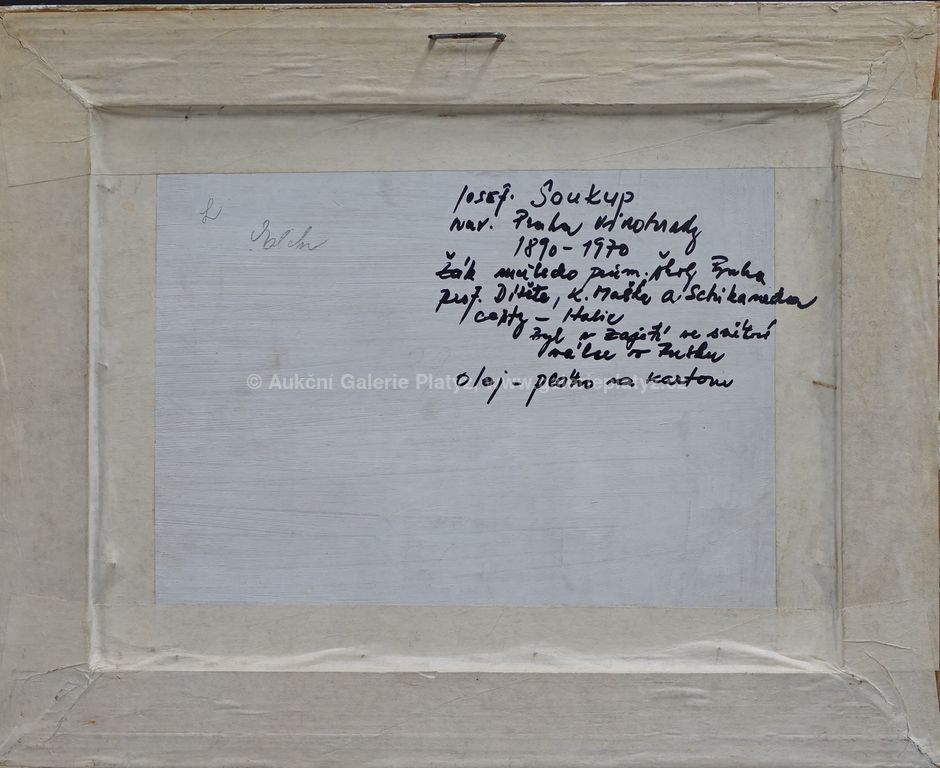 Josef. Soukup
nar. Praha Vinohrady
1890 - 1970
Žák umělecko prům. školy Praha
prof. Dítěte, K. Maška a Schikanedra
cesty - Italie
Byl v zajetí ve světové
válce v Rusku
Olej - plátno na kartonu
© Aukční Galerie Platýz